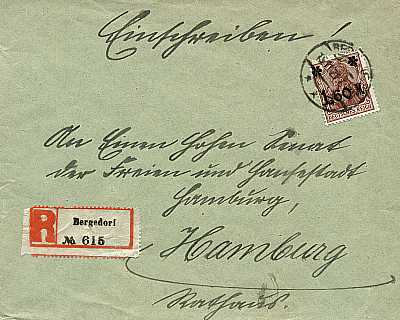 Einschreiben!
BERG
1,60 M
DEUTSCHES REICH
An Einen Hohen Senat
der Freien und Hansestadt
Hamburg,
R Bergedorf
№ 615
Hamburg
Rathaus.